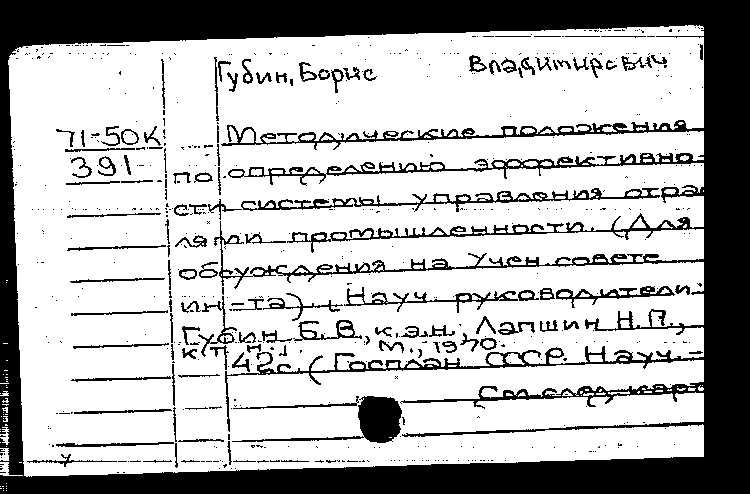 Губин, Борис Владимирович
71-50К Методические положения
391 по определению эффективно-
сти системы управления отрас
лями промышленности. (Для
обсуждения на Учен. совете
ин-та). Науч. руководители:
Губин Б.В., к.э.н., Лапшин Н.П.,
к.т.н. М., 1970.
42с. (Госплан СССР. Науч.-
См. след. карт